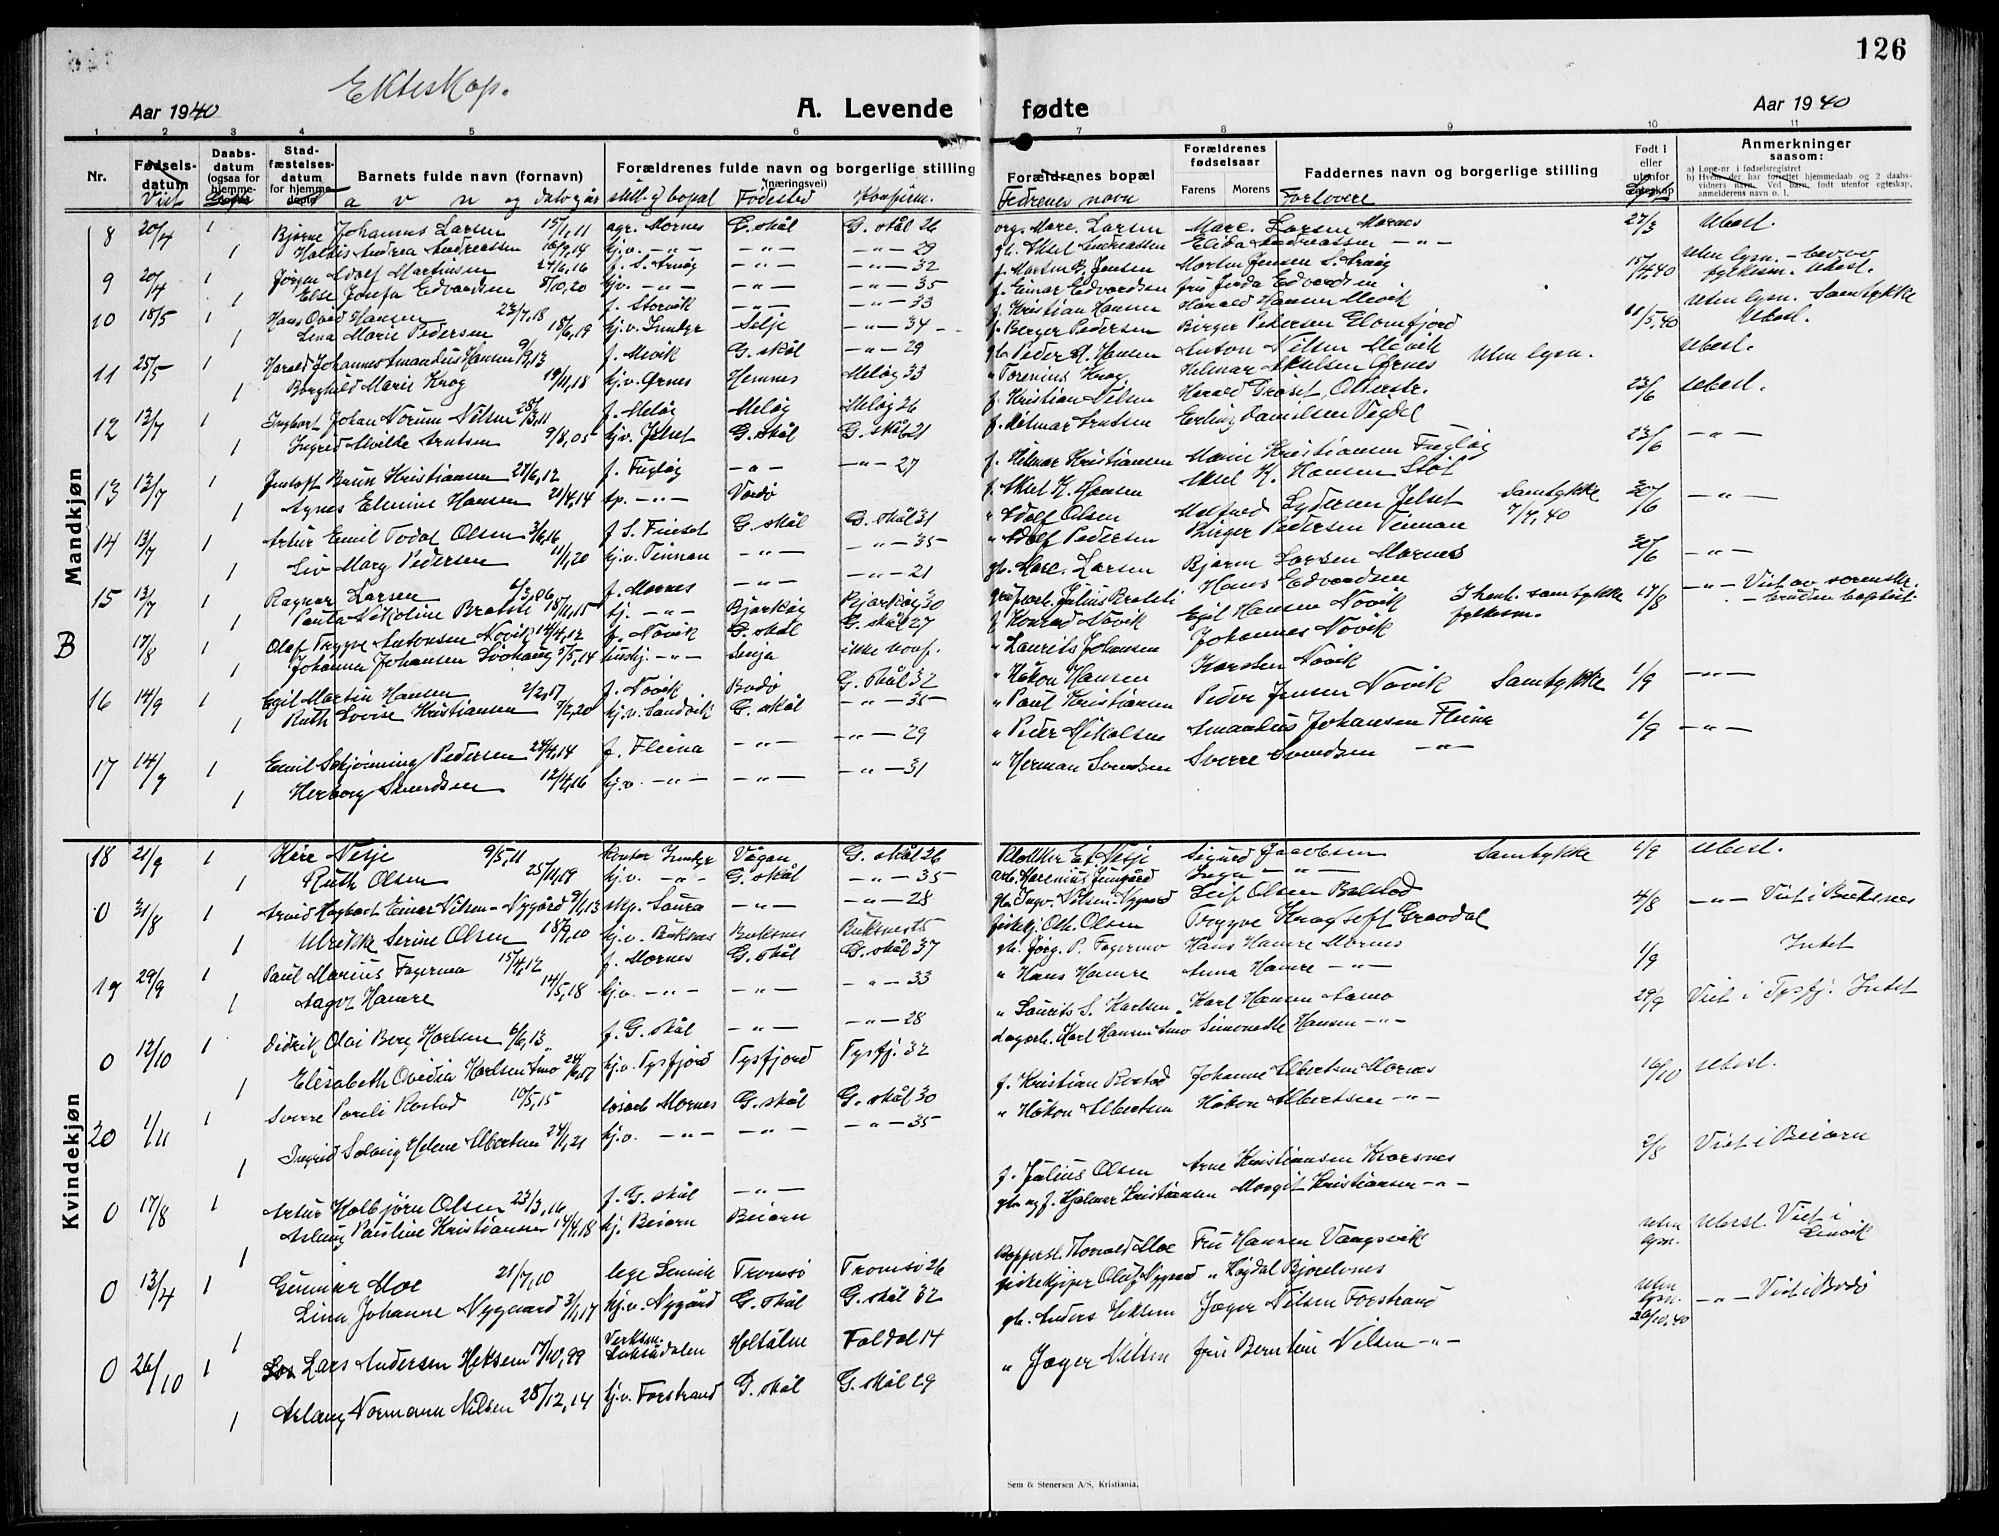 126
Ekteskap.
Aar 1940
A. Levende
fødte
Aar 1940
1 2 3 4 5 6 7 8 9 10 11
Nr.
Fødselsdatum
Viet
Daabsdatum
(ogsaa for
hjemmedøpte)
Stadfæstelsesdatum
for hjemmedøpte
Barnets fulde navn (fornavn)
Navn og dato, år
Forældrenes fulde navn og borgerlige stilling
(næringsvei)
still. og bopæl Fødested Konfirm.
Forældrenes bopæl
Fedrenes navn
Forældrenes
fødselsaar
Farens Morens
Faddernes navn og borgerlige stilling
Forlovere
Født i
eller
utenfor
egteskap
Lyst
Anmerkninger
saasom:
a) Løpe-nr i fødselsregistret
b) Hvem der har forettet hjemmedaab og 2 daabsvidners navn. Ved barn, født utenfor egteskap, anmelderens navn o. l.
Mandkjøn
8 20/4 1 Bjørne Johannes Larsen 15/1,11 agr. Mornes G. skål G. skål 26 org. Marc. Larsen Marc. Larsen Mornes 27/3 Ubesl.
1 Haldis Andrea Andreassen 16/9,14 hj.v. —"— —"— —"— 29 gb. Aksel Andreassen Elida Andreassen —"—
9 20/4 1 Jørgen Adolf Martinsen 24/6,16 f. S. Arnøy —"— —"— 32 f. Morten B. Jensen Morten Jensen S. Arnøy 15/4,40 Uten lysn. - bev. av fylkesm. Ubesl.
1 Else Josefa Edvardsen 5/10,20 hj.v. —"— —"— —"— 35 f. Einar Edvardsen fru Frida Edvardsen
10 18/5 1 Hans Oved Hansen 23/7,18 f. Storvik —"— —"— 33 f. Kristian Hansen Harald Hansen Mevik 11/5,40 Uten lysn. Samtykke
1 Lina Marie Pedersen 18/6,19 hj.v. Inndyr Selje —"— 34 f. Berger Pedersen Birger Pedersen Glomfjord Ubesl.
11 25/5 1 Harald Johannes Amandus Hansen 9/9,13 f. Mevik G. skål —"— 29 gb. Peder A. Hansen Anton Nilsen Mevik Uten lysn. Ubesl.
1 Borghild Marie Krog 19/11,18 hj.v. Ørnes Hemnes Meløy 33 " Torenius Krog Helmar Akulsen Ørnes
12 13/7 1 Ingbart Johan Norum Nilsen 28/3,11 f. Meløy Meløy Meløy 26 f. Kristian Nilsen Harald Grøset, Otterstr. 23/6 Ubesl.
1 Ingrid Alvilde Arntsen 9/8,05 hj.v. Jelset G. skål G. skål 21 f. Hilmar Arntsen Erling Danielsen Vegdal
13 13/7 1 Jentoft Brun Kristiansen 28/6,12 f. Fugløy —"— —"— 27 f. Hilmar Kristiansen Marie Kristiansen Fugløy 23/6 —"—
1 Agnes Elmine Hansen 21/4,14 sp. —"— Vardø f. Aksel K. Hansen Aksel K. Hansen Støt
14 13/7 1 Artur Emil Todal Olsen 3/6,16 f. S. Finset G. skål G. skål 31 " Adolf Olsen Malfred Lydersen Jelset Samtykke 7/7,40 30/6 —"—
1 Liv Mary Pedersen 11/1,20 hj.v. Tinnan —"— —"— 35 " Adolf Pedersen Birger Pedersen Tinnan
15 13/7 1 Ragnar Larsen 6/3,06 f. Mornes —"— —"— 21 gb. Marc. Larsen Bjarne Larsen Mornes 30/6 —"—
1 Paula Nikoline Bratsli 18/11,15 hj. —"— Bjarkøy Bjarkøy 30 gruvearb. Julius Bratsli Hans Edvardsen
B 17/8 1 Olaf Trygve Antonsen Novik 14/4,12 f. Novik G. skål G. skål 27 f. Konrad Novik Egil Hansen Novik I henh. samtykke fylkesm. 17/8 —"— Viet av sorenskr. - bruden baptist.
1 Johanna Johansen Lovhaug 3/5,14 hushj. —"— Senja ikke konf. " Laurits Johansen Johannes Novik
16 14/9 1 Egil Martin Hansen 2/2,17 f. Novik Bodø G. skål 32 " Håkon Hansen Karsten Novik 1/9 —"—
1 Ruth Lovise Kristiansen 7/2,20 hj.v. Sandvik G. skål —"— 35 " Paul Kristiansen Peder Jensen Novik Samtykke
17 14/9 1 Emil Schjønning Pedersen 24/4,14 f. Fleina —"— —"— 29 " Peder Mikalsen Amandus Johansen Fleina 1/9 —"—
1 Herborg Svendsen 12/4,16 hj.v. —"— —"— —"— 31 " Herman Svendsen Sverre Svendsen —"—
Kvindekjøn
18 21/9 1 Kåre Nesje 9/5,11 kontor Inndyr Vågan G. skål 26 Klokker E. Nesje Sigurd Jacobsen Samtykke 1/9 Ubesl.
1 Ruth Olsen 25/11,19 hj.v. —"— G. skål —"— 35 arb. Harenius Inga —"—
0 31/8 1 Arvid Hagbart Einar Nilsen-Nygård 9/1,13 skp. Saura —"— —"— 28 gb. Ingv. Nilsen-Nygård Leif Olsen Balstad 4/8 —"— Viet i Buksnes
1 Ulrikke Serine Olsen 18/9,10 hj.v. Buksnes Buksnes Buksnes 25 fiskekj. Oth. Olsen Trygve Knagtoft Gravdal
19 29/9 1 Paul Marius Fagermo 15/4,12 f. Mornes G. skål G. skål 37 gb. Jørg. P. Fagermo Hans Hamre Mornes 1/9 Intet
1 Aagot Hamre 14/5,18 hj.v. —"— —"— —"— 33 " Hans Hamre Anna Hamre —"—
0 12/10 1 Didrik Olai Berg Karlsen 6/6,13 f. G. skål —"— —"— 28 " Laurits S. Karlsen Karl Hansen Aamo 29/9 Viet i Tysfj. Intet
1 Elisabeth Ovedia Karlsen Amo 24/6,17 hj.v. Tysfjord Tysfjord Tysfj. 32 dagarb. Karl Hansen Amo Simonette Hansen —"—
20 1/11 1 Sverre Pareli Rostad 10/5,15 løsarb Mornes G. skål G. skål 30 f. Kristian Rostad Johanne Albertsen Mornes 16/10 Ubesl.
1 Ingrid Solveig Helene Albertsen 24/1,21 hj.v. —"— —"— —"— 35 " Håkon Albertsen Håkon Albertsen —"—
0 17/8 1 Artur Kolbjørn Olsen 23/3,16 f. G. skål —"— f. Julius Olsen Arne Kristiansen Kvarsnes 2/8 Viet i Beiarn
1 Aslaug Pauline Kristiansen 14/4,18 hj. Beiarn Beiarn gb. og f. Hjalmar Kristiansen Margit Kristiansen —"—
0 13/4 1 Gunnar Moe 21/7,10 lege Lenvik Tromsø Tromsø 26 Torvald Moe Fru Hansen Vangsvik Uten lysn. Ubesl. Viet i Lenvik
1 Lina Johanne Nygaard 3/1,17 hj.v. Nygård G. skål G. skål 32 fiskekjøper Olaf Nygaard " Høgdal Bjorelvnes
0 26/10 1 Lars Andersen Heksem 17/10,99 Verksm. Løkkadalen Holtålen Foldal 14 gb. Anders Heksem Jæger Nilsen Forstrand Uten lysn. 26/10,40 —"— Viet i Bodø
1 Aslaug Normann Nilsen 28/12,14 hj.v. Forstrand G. skål G. skål 29 " Jæger Nilsen fru Berntine Nilsen —"—
Sem & Stenersen A/S, Kristiania.